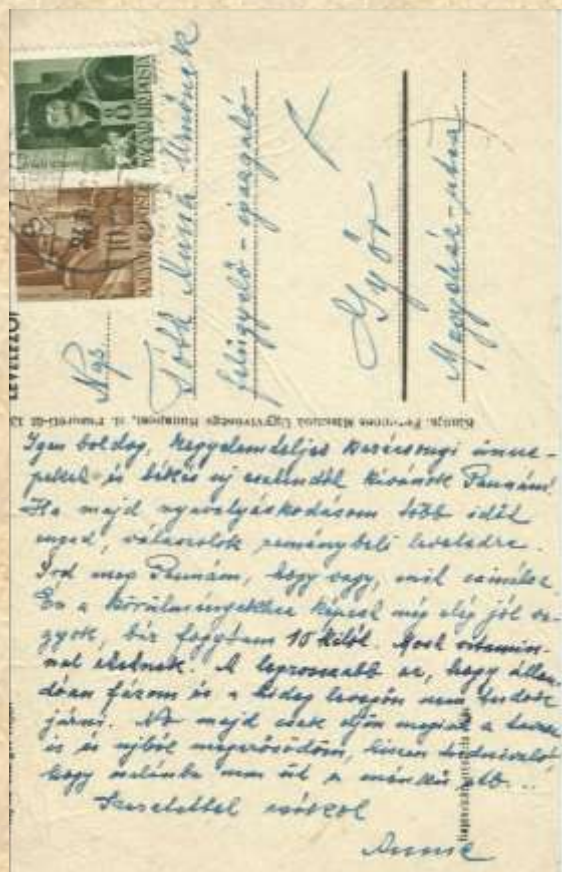 LEVELEZŐ
8
MAGYAR KIR. POSTA
10
MAGYAR KIR. POSTA
Ngs.
Tóth Manna Urnőnek
felügyelő-igazgató
Győr
Megyeház-utca
Igen boldog, kegyelemteljes karácsonyi ünne-
peket és békés új esztendőt kívánok Pannám!
Ha majd nyavalyáskodásom több időt
enged, válaszolok reménybeli leveledre.
Írd meg Pannám, hogy vagy, mit csinálsz.
Én a körülményekhez képest még elég jól va-
gyok, bár fogytam 10 kilót. Most vitamin-
nal etetnek. A legrosszabb az, hogy állan-
dóan fázom és a hideg levegőn nem tudok
járni. No majd csak eljön megint a tavasz
is és ujból megerősödöm, hiszen tudnivaló
hogy csalánba nem üt a ménkű stb...
Szeretettel csókol
Annus